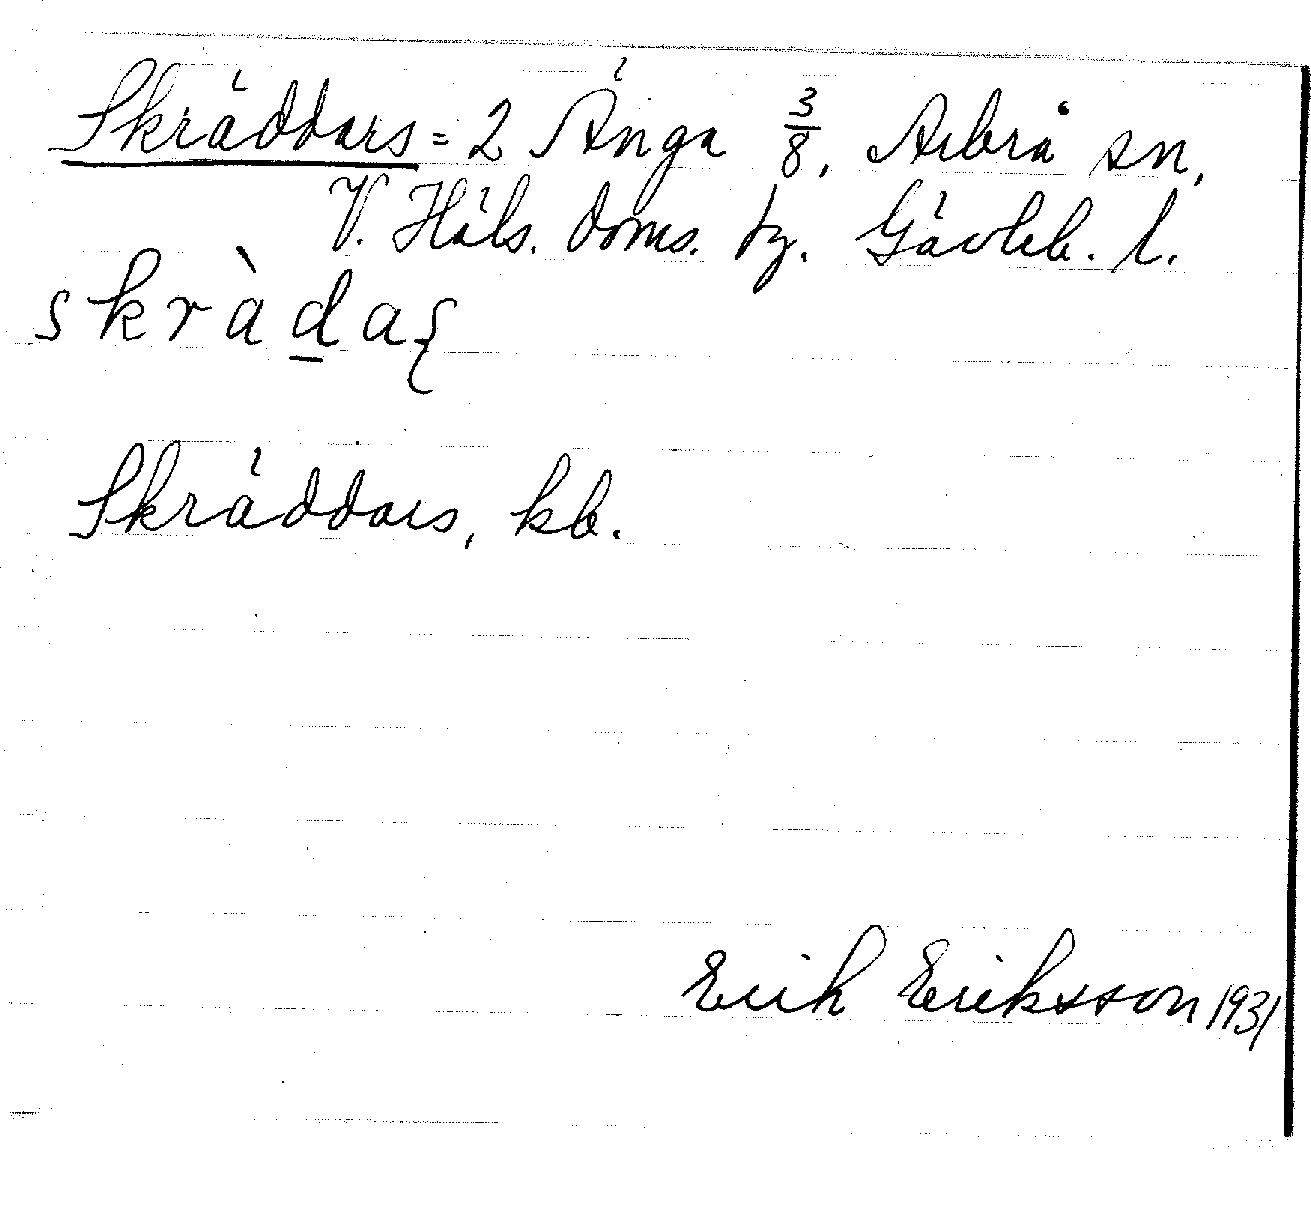 Skräddars = 2 Änga 3/8, Arbrå sn,
V. Häls. doms. tg. Gävleb. l.
skràd̲aʂ
Skräddars, kb.
Erik Eriksson 1931